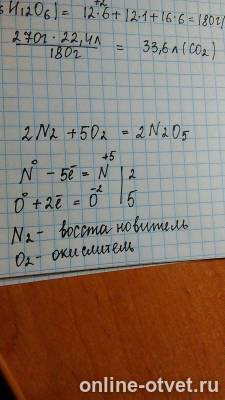 6H12O6) = 12·6+12·1+16·6=180г/
270г·22,4л / 180г = 33,6л(CO2)
2N2 +5O2 = 2N2O5
N⁰ - 5ē = N⁺⁵ | 2
O⁰ +2ē = O⁻² | 5
N2 - восстановитель
O2 - окислитель
online-otvet.ru